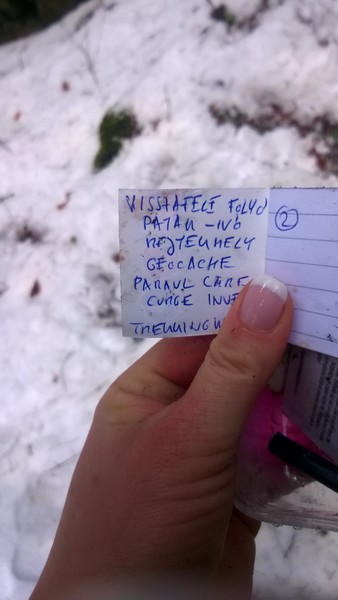 VISSZAFELÉ FOLYÓ
PATAK - IVÓ
REJTEKHELY
GEOCACHE
PARAUL CARE
CURGE INVE
②